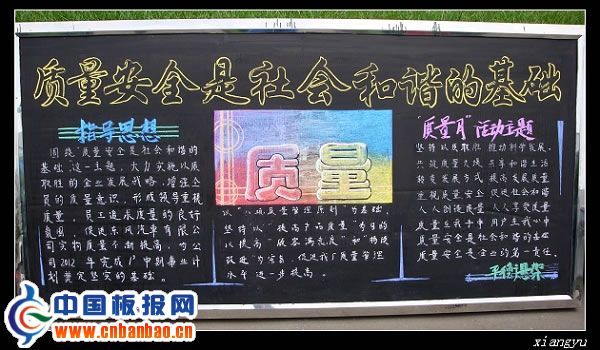 质量安全是社会和谐的基础
指导思想
围绕"质量安全是社会和谐的
基础"这一主题，大力实施以质
取胜的企业发展战略，增强全
员的质量意识，形成领导重视
质量，员工追求质量的良好
氛围，促进东风汽车有限公
司实物质量不断提高，为公
司2012年完成
计划奠定坚实的基础。
质量
以"八项质量管理原则"为基础，
坚持以"提高产品质量"为目的
以"提高顾客满意度"和"持续
改进"为宗旨，促进我厂质量管理
水平进一步提高。
"质量月"活动主题
坚持以质取胜 推动科学发展
共筑质量大堤 共享和谐生活
转变发展方式 提高发展质量
重视质量安全 促进社会和谐
人人创造质量 人人享受质量
质量在我手中 用户在我心中
质量安全是社会和谐的基础
质量安全是企业的第一责任
中国板报网
www.cnbanbao.cn
xiangyu